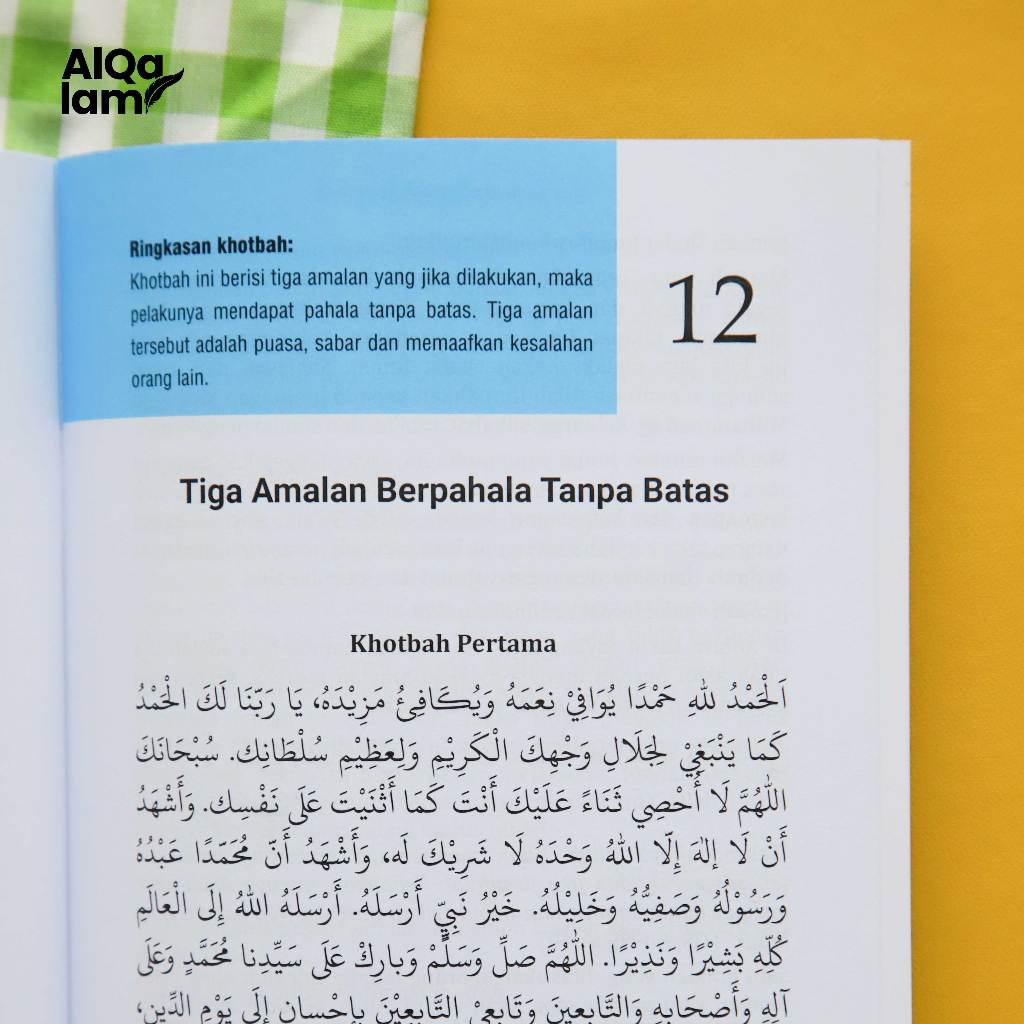 AlQa
lam
Ringkasan khotbah:
Khotbah ini berisi tiga amalan yang jika dilakukan, maka
pelakunya mendapat pahala tanpa batas. Tiga amalan
tersebut adalah puasa, sabar dan memaafkan kesalahan
orang lain.
12
Tiga Amalan Berpahala Tanpa Batas
Khotbah Pertama
اَلْحَمْدُ لِلهِ حَمْدًا يُوَافِيْ نِعَمَهُ وَيُكَافِئُ مَزِيْدَهُ، يَا رَبَّنَا لَكَ الْحَمْدُ
كَمَا يَنْبَغِيْ لِجَلَالِ وَجْهِكَ الْكَرِيْمِ وَلِعَظِيْمِ سُلْطَانِك. سُبْحَانَكَ
اللّٰهُمَّ لَا أُحْصِي ثَنَاءً عَلَيْكَ أَنْتَ كَمَا أَثْنَيْتَ عَلَى نَفْسِك. وَأَشْهَدُ
أَنْ لَا إِلهَ إِلَّا اللهُ وَحْدَهُ لَا شَرِيْكَ لَه، وَأَشْهَدُ أَنَّ مُحَمَّدًا عَبْدُهُ
وَرَسُوْلُهُ وَصَفِيُّهُ وَخَلِيْلُهُ. خَيْرُ نَبِيٍّ أَرْسَلَهُ. أَرْسَلَهُ اللهُ إِلَى الْعَالَمِ
كُلِّهِ بَشِيْرًا وَنَذِيْرًا. اللّٰهُمَّ صَلِّ وَسَلِّمْ وَبارِكْ عَلَى سَيِّدِنا مُحَمَّدٍ وَعَلَى
آلِهِ وَأَصْحَابِهِ وَالتَّابِعِينَ وَتَابِعِيْ التَّابِعِيْنَ بِإِحْسانٍ إِلَى يَوْمِ الدِّينِ،